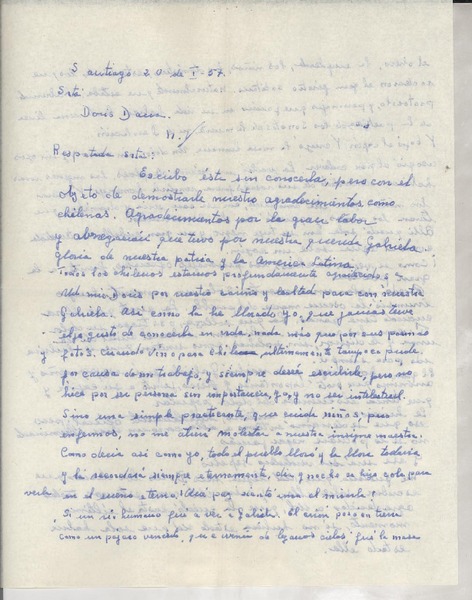 Santiago 20 de I-57.
Srta:
Doris Dana.
N.Y
Respetada Srta:
Escribo ésta sin conocerla, pero con el
objeto de demostrarle nuestro agradecimientos como
chilenas. Agradecimientos por la gran labor
y abnegación que tuvo por nuestra querida Gabriela
gloria de nuestra patria y la America Latina.
Todos los chilenos estamos profundamente agradecidos a
Ud. miss Doris por nuestro cariño y lealtad para con nuestra
Gabriela. Así como la he llorado yo, que jamás tuve
el gusto de conocerla en vida, nada más que por sus poemas
y fotos. Cuando vino para Chile ultimamente tampoco pude
por causa de mi trabajo, y siempre deseé escribirle, pero no
hice por ser persona sin importancia, yo, y no ser intelectual.
Sino una simple practicante, que cuida niños, pero
enfermos, no me atreví molestar a nuestra insigne maestra.
Como decía así como yo, todo el pueblo lloró y la llora todavía
y la recordará siempre eternamente, día y noche se hizo cola para
verla en el sueño eterno! Qué paz sentí una al mirarla!
Si un ser humano fué a ver a Gabriela. El avión posó en tierra
como un pájaro vencido, que a cernir de lejanos cielos fué la masa